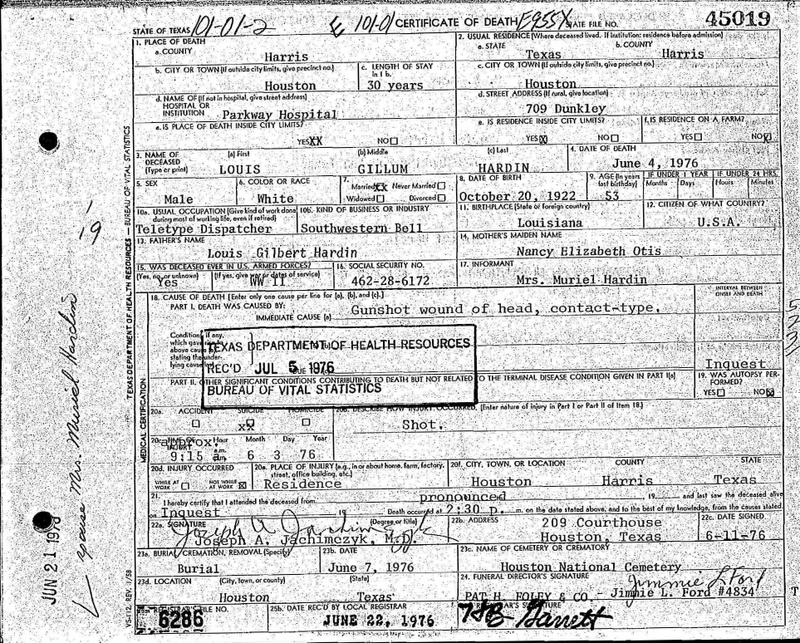 STATE OF TEXAS 101-01-2 101-01 CERTIFICATE OF DEATH E955X STATE FILE NO. 45019
1. PLACE OF DEATH
a. COUNTY
Harris
2. USUAL RESIDENCE (Where deceased lived. If institution: residence before admission)
a. STATE b. COUNTY
Texas Harris
b. CITY OR TOWN (If outside city limits, give precinct no.)
Houston
c. LENGTH OF STAY in 1 b.
30 years
c. CITY OR TOWN (If outside city limits, give precinct no.)
Houston
d. NAME OF (If not in hospital, give street address)
HOSPITAL OR
INSTITUTION Parkway Hospital
d. STREET ADDRESS (If rural, give location)
709 Dunkley
e. IS PLACE OF DEATH INSIDE CITY LIMITS?
YES XX NO
e. IS RESIDENCE INSIDE CITY LIMITS?
YES X NO
f. IS RESIDENCE ON A FARM?
YES NO X
3. NAME OF DECEASED (Type or print)
(a) First (b) Middle (c) Last
LOUIS GILLUM HARDIN
4. DATE OF DEATH
June 4, 1976
5. SEX
Male
6. COLOR OR RACE
White
7.
Married XX Never Married
Widowed Divorced
8. DATE OF BIRTH
October 20, 1922
9. AGE (In years last birthday)
53
IF UNDER 1 YEAR IF UNDER 24 HRS.
Months Days Hours Minutes
10a. USUAL OCCUPATION (Give kind of work done during most of working life, even if retired)
Teletype Dispatcher
10b. KIND OF BUSINESS OR INDUSTRY
Southwestern Bell
11. BIRTHPLACE (State or foreign country)
Louisiana
12. CITIZEN OF WHAT COUNTRY?
U.S.A.
13. FATHER'S NAME
Louis Gilbert Hardin
14. MOTHER'S MAIDEN NAME
Nancy Elizabeth Otis
15. WAS DECEASED EVER IN U.S. ARMED FORCES?
(Yes, no, or unknown) (If yes, give war or dates of service)
Yes WW II
16. SOCIAL SECURITY NO.
462-28-6172
17. INFORMANT
Mrs. Muriel Hardin
18. CAUSE OF DEATH [Enter only one cause per line for (a), (b), and (c).]
INTERVAL BETWEEN ONSET AND DEATH
PART I. DEATH WAS CAUSED BY:
IMMEDIATE CAUSE (a) Gunshot wound of head, contact-type.
Conditions, if any,
which gave
above cause
stating the under-
lying cause
TEXAS DEPARTMENT OF HEALTH RESOURCES
REC'D JUL 5 1976
BUREAU OF VITAL STATISTICS
Inquest
PART II. OTHER SIGNIFICANT CONDITIONS CONTRIBUTING TO DEATH BUT NOT RELATED TO THE TERMINAL DISEASE CONDITION GIVEN IN PART I(a)
19. WAS AUTOPSY PERFORMED?
YES NO X
20a.
ACCIDENT SUICIDE HOMICIDE
xx
20b. DESCRIBE HOW INJURY OCCURRED. (Enter nature of injury in Part I or Part II of Item 18.)
Shot.
20c. TIME OF INJURY Hour Month Day Year
approx.
9:15 a.m. 6 3 76
20d. INJURY OCCURRED
WHILE AT WORK NOT WHILE AT WORK X
20e. PLACE OF INJURY (e.g., in or about home, farm, factory, street, office building, etc.)
Residence
20f. CITY, TOWN, OR LOCATION COUNTY STATE
Houston Harris Texas
21. pronounced
I hereby certify that I attended the deceased from 19 and last saw the deceased alive
on Inquest 19 Death occurred at 2:30 p. m. on the date stated above, and to the best of my knowledge, from the causes stated.
22a. SIGNATURE (Degree or title)
Joseph A. Jachimczyk
Joseph A. Jachimczyk, M.D.
22b. ADDRESS
209 Courthouse
Houston, Texas
22c. DATE SIGNED
6-11-76
23a. BURIAL, CREMATION, REMOVAL (Specify)
Burial
23b. DATE
June 7, 1976
23c. NAME OF CEMETERY OR CREMATORY
Houston National Cemetery
23d. LOCATION (City, town, or county) (State)
Houston Texas
24. FUNERAL DIRECTOR'S SIGNATURE
Jimmie L. Ford
PAT H. FOLEY & CO. - Jimmie L. Ford #4834
25a. REGISTRAR'S FILE NO.
6286
25b. DATE REC'D BY LOCAL REGISTRAR
JUNE 22, 1976
REGISTRAR'S SIGNATURE
Garrett
TEXAS DEPARTMENT OF HEALTH RESOURCES — BUREAU OF VITAL STATISTICS
MEDICAL CERTIFICATION
VS-112, REV. 1/58
19
spouse Mrs. Muriel Hardin
JUN 21 1976